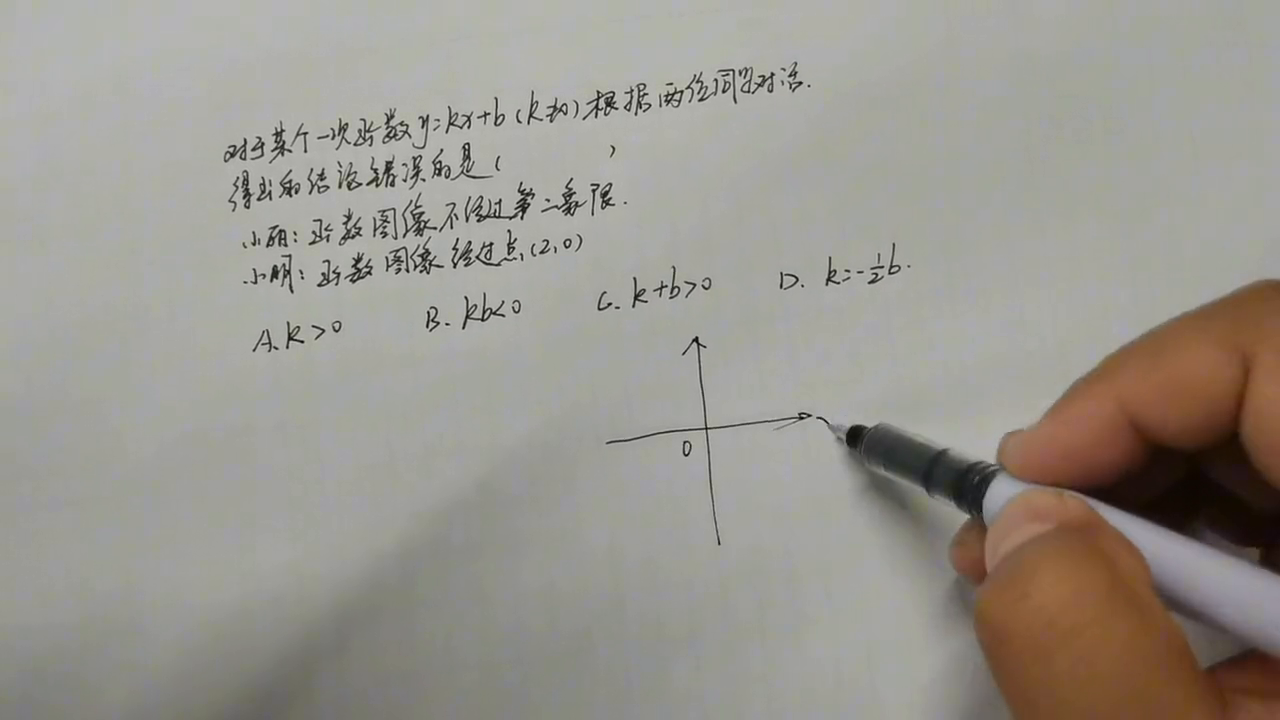 对于某个一次函数y=kx+b(k≠0)根据两位同学对话.
得出的结论错误的是( )
小丽:函数图像不经过第二象限.
小明:函数图像经过点(2,0)
A.k>0 B.kb<0 C.k+b>0 D.k=-1/2b.
0